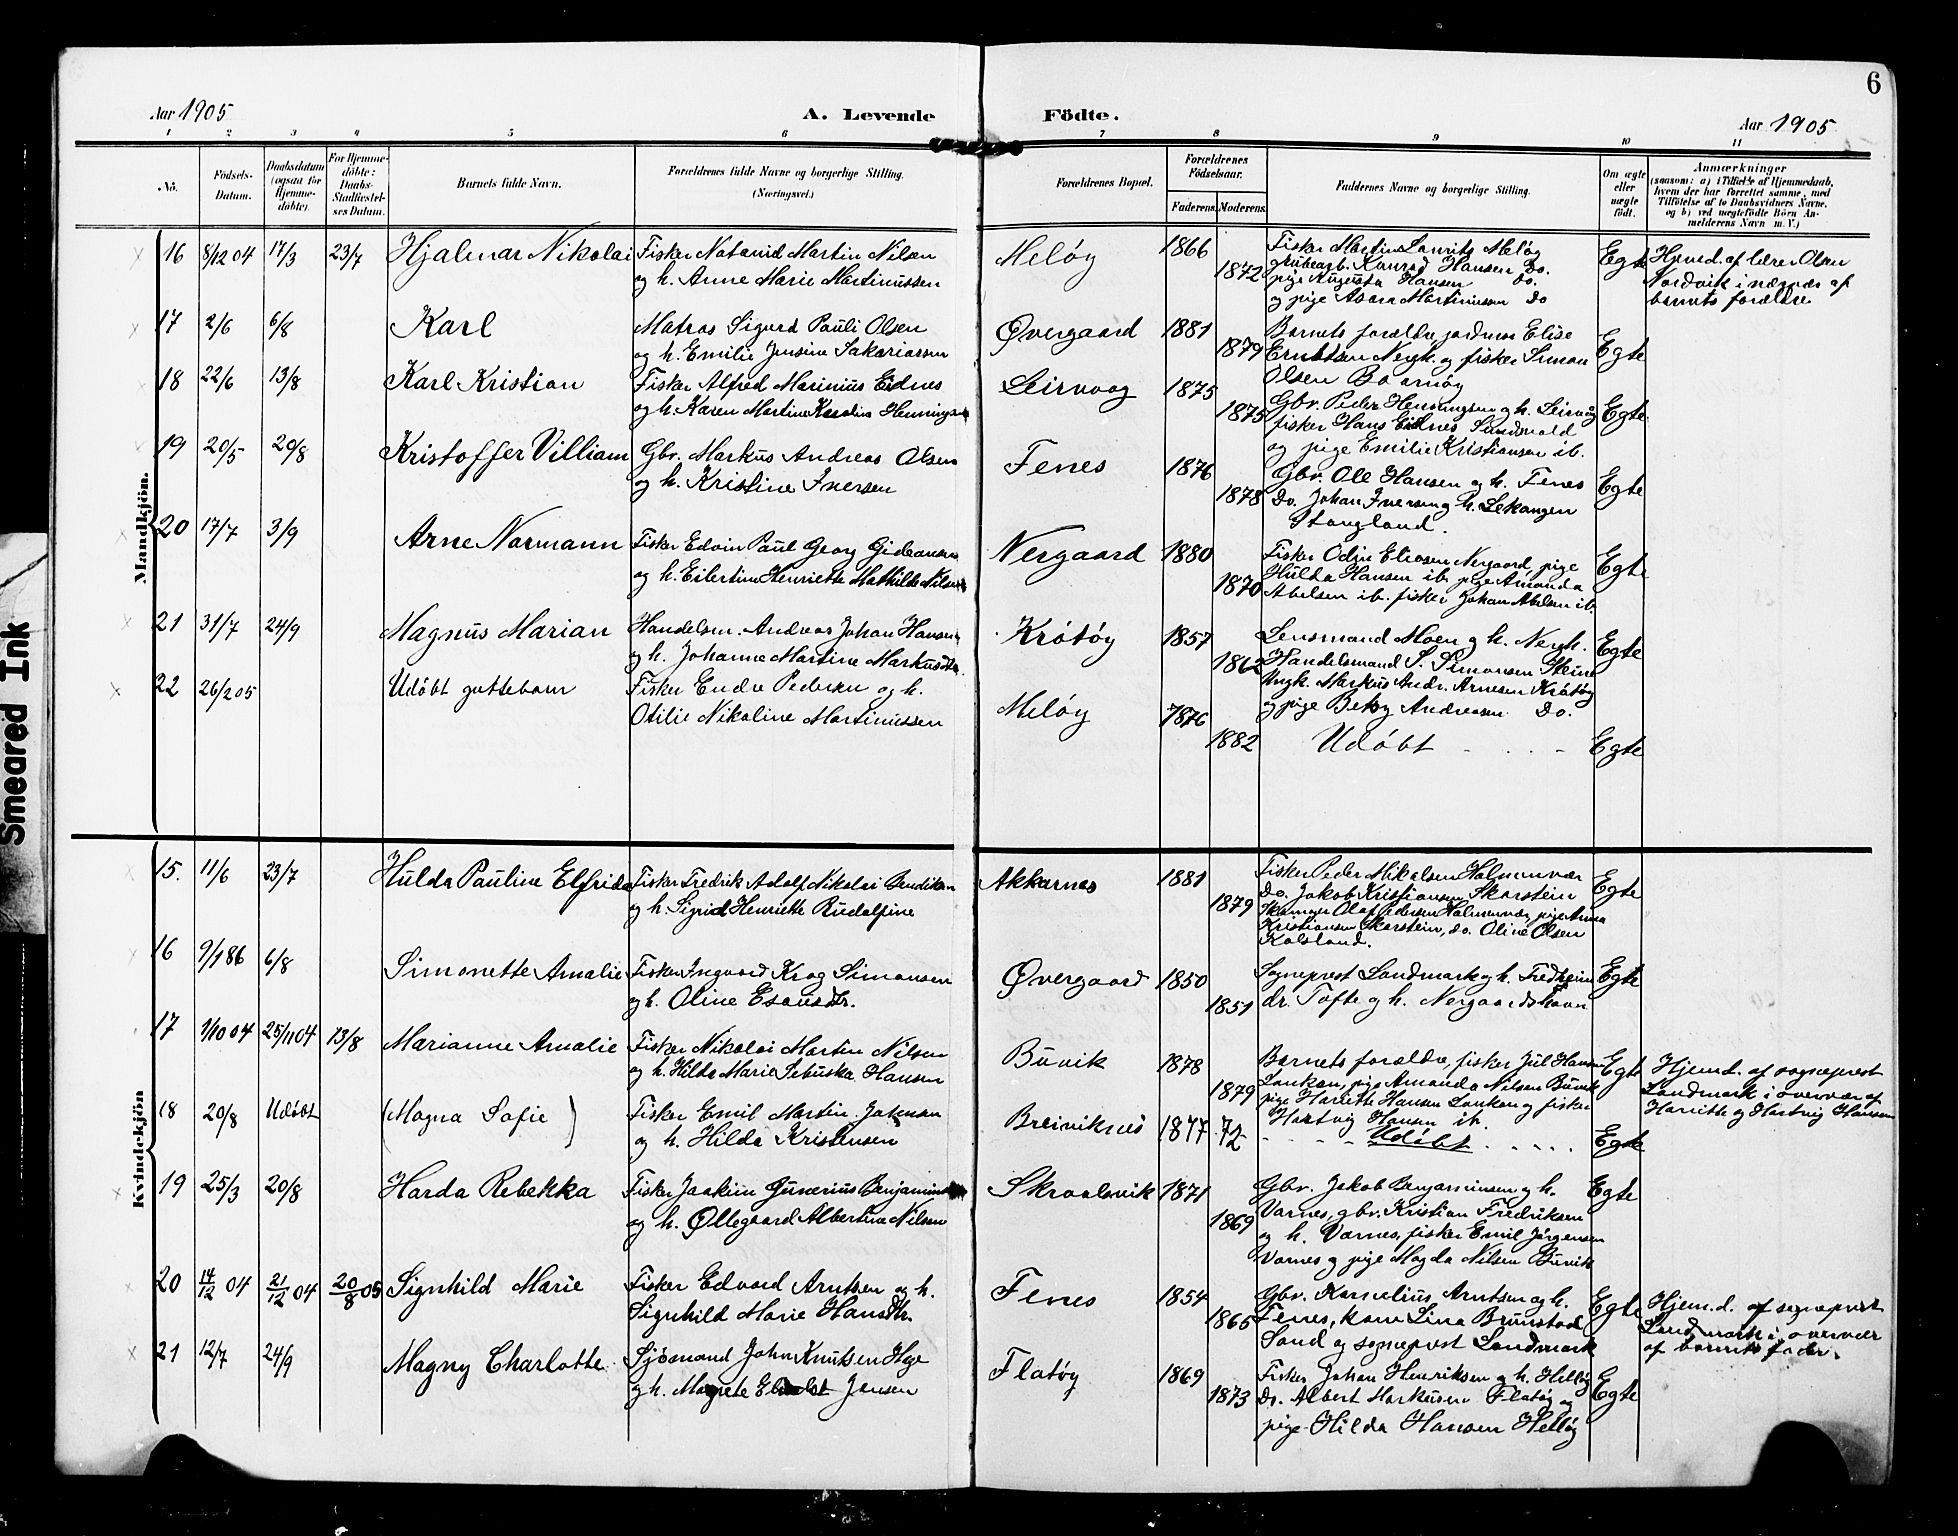 6
Aar 1905
A. Levende
Födte.
Aar 1905
1 2 3 4 5 6 7 8 9 10 11
No.
Födsels-
Datum.
Daabsdatum
(ogsaa for
Hjemme-
döbte).
For Hjemme-
döbte:
Daabs-
Stadfæstel-
ses Datum.
Barnets fulde Navn.
Forældrenes fulde Navne og borgerlige Stilling.
(Næringsvei.)
Forældrenes Bopæl.
Forældrenes
Födselsaar.
Faderens.
Moderens.
Faddernes Navne og borgerlige Stilling.
Om ægte
eller
uægte
födt.
Anmærkninger
(saasom: a) i Tilfælde af Hjemmedaab,
hvem der har forrettet samme, med
Tilföielse af to Daabsvidners Navne,
og b) ved uægtefödte Börn An-
melderens Navn m. V.)
Mandkjön.
16 8/12 04 17/3 23/7 Hjalmar Nikolai
Fisker Martin Nilsen
og h. Anne Marie Martinussen
Meløy 1866
1872
Fisker Martin Laurits Meløy
Konrad Hansen Do.
pige Augusta Hansen Do.
og pige Martinussen Do
Egte
Hjemd. af lærer Olsen
Nordvik i nærvær af
barnets forældre
17 2/6 6/8 Karl
Matros Sigurd Pauli Olsen
og h. Emilie Jensine Sakariassen
Øvergaard 1881
1879
Barnets forældre, jordmor Elise
Erntsen Nergh. og fisker Simon
Olsen Bomøy
Egte
18 22/6 13/8 Karl Kristian
Fisker Alfred Marinius Eidnes
og h. Karen Martine Karolia Henningsen
Leirvaag 1875
1875
Gbr. Peder Henningsen og h. Leirvåg
fisker Hans Eidnes
og pige Emilie Kristiansen ib.
Egte
19 20/5 20/8 Kristoffer Villiam
Gbr. Markus Andreas Olsen
og h. Kristine Iversen
Fenes 1876
1878
Gbr. Ole Hansen og h. Fenes
Do. Johan Iversen og h. Lekangen
Stangland.
Egte
20 17/7 3/9 Arne Normann
Fisker Edvin Paul Georg Gideonsen
og h. Eilertine Henriette Mathilde Nilsen
Nergaard 1880
1870
Fisker Odin Eliasen Nergaard, pige
Hulda Hansen ib. pige Amanda
Abelsen ib. fisker Johan Abelsen ib.
Egte
21 31/7 24/9 Magnus Marian
Handelsm. Andreas Johan Hansen
og h. Johanne Martine Markusdtr.
Krótøy 1857
1862
Lensmand Moen og h. Nergh.
Handelsmand S. Simonsen Steine
Ungk. Markus Andr. Arnesen Krótøy
og pige Betsy Andreasen Do.
Egte
22 26/2 05 Udøbt guttebarn
Fisker Endre Pedersen og h.
Otilie Nikoline Martinussen
Meløy 1876
1882
Udøbt
Egte
Kvindekjön
15. 11/6 23/7 Hulda Pauline Elfrida
Fisker Fredrik Adolf Nikolai Bendiksen
og h. Sigrid Henriette Rudolfine
Akkarnes 1881
1879
Fisker Peder Mikalsen Holmenvær
Do. Jakob Kristiansen Skarstein
Olaf Pedersen Holmenvær, pige Anna
Kristiansen Skarstein, do. Oline Olsen
Kalsland.
Egte
16 9/1 86 6/8 Simonette Amalie
Fisker Ingvard Krog Simonsen
og h. Oline Esausdtr.
Øvergaard 1850
1851
Sogneprest Landmark og h. Fredheim
dr. Tofte og h. Nergaardshavn
Egte
17 1/10 04 25/11 04 13/8 Marianne Amalie
Fisker Nikolai Martin Nilsen
og h. Hilda Marie Hansen
Buvik 1878
1879
Barnets forældre, fisker Jul Hansen
pige Amanda Nilsen Buvik
pige Henriette Hansen og fisker
Hartvig Hansen ib.
Egte
Hjemd. af sogneprest
Landmark i overvær af
Henriette og Hartvig Hansen
18 20/8 Udøbt (Magna Sofie)
Fisker Emil Martin Johnsen
og h. Hilda Kristensen
Breiviknes 1877 72
Udøbt
Egte
19 25/3 20/8 Harda Rebekka
Fisker Joakim Gunerius Benjaminsen
og h. Øllegaard Albertine Nilsen
Skraalsvik 1871
1869
Gbr. Jakob Benjaminsen og h.
Varnes, gbr. Kristian Fredriksen
og h. Varnes, fisker Emil Jørgensen
Varnes og pige Magda Nilsen Buvik
Egte
20 14/12 04 21/12 04 20/8 05 Signhild Marie
Fisker Edvard Arntsen og h.
Signhild Marie Hansdtr.
Fenes 1854
1865
Gbr. Kornelius Arntsen og h.
Fenes, kone Lina Brunstad
Sand og sogneprest Landmark
Egte
Hjem.d. af sogneprest
Landmark i overvær
af barnets fader.
21 12/7 24/9 Magny Charlotte
Sjömand John Knutsen Hege
og h. Jensen
Flatöy 1869
1873
Fisker Johan Henriksen og h. Helløy
Do. Albert Markussen Flatøy og
pige Hilda Hansen Helløy
Egte
Smeared Ink